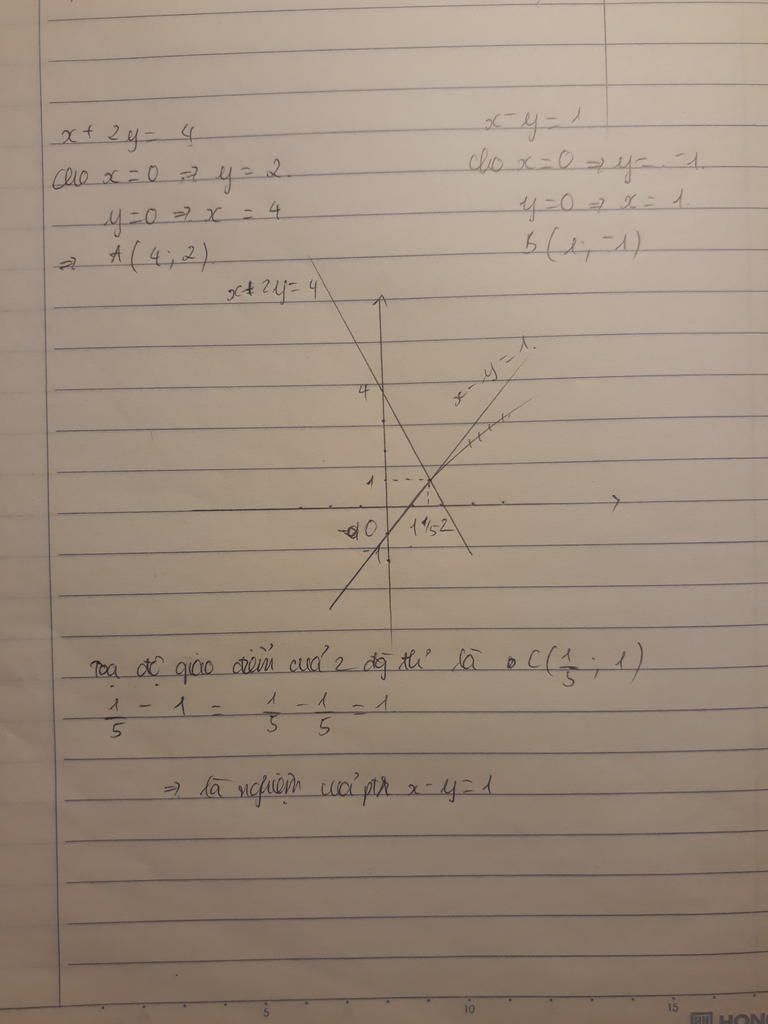 x + 2y = 4
cho x = 0 => y = 2.
y = 0 => x = 4
=> A(4; 2)
x - y = 1
cho x = 0 => y = -1.
y = 0 => x = 1.
B(1; -1)
x + 2y = 4
x - y = 1.
4
1
0
1 1/5 2
-1
Toạ độ giao điểm cuả 2 đg thị là C(1/5; 1)
1/5 - 1 = 1/5 - 1/5 = 1
=> là nghiệm cuả ptr x - y = 1
5 10 15
HONG